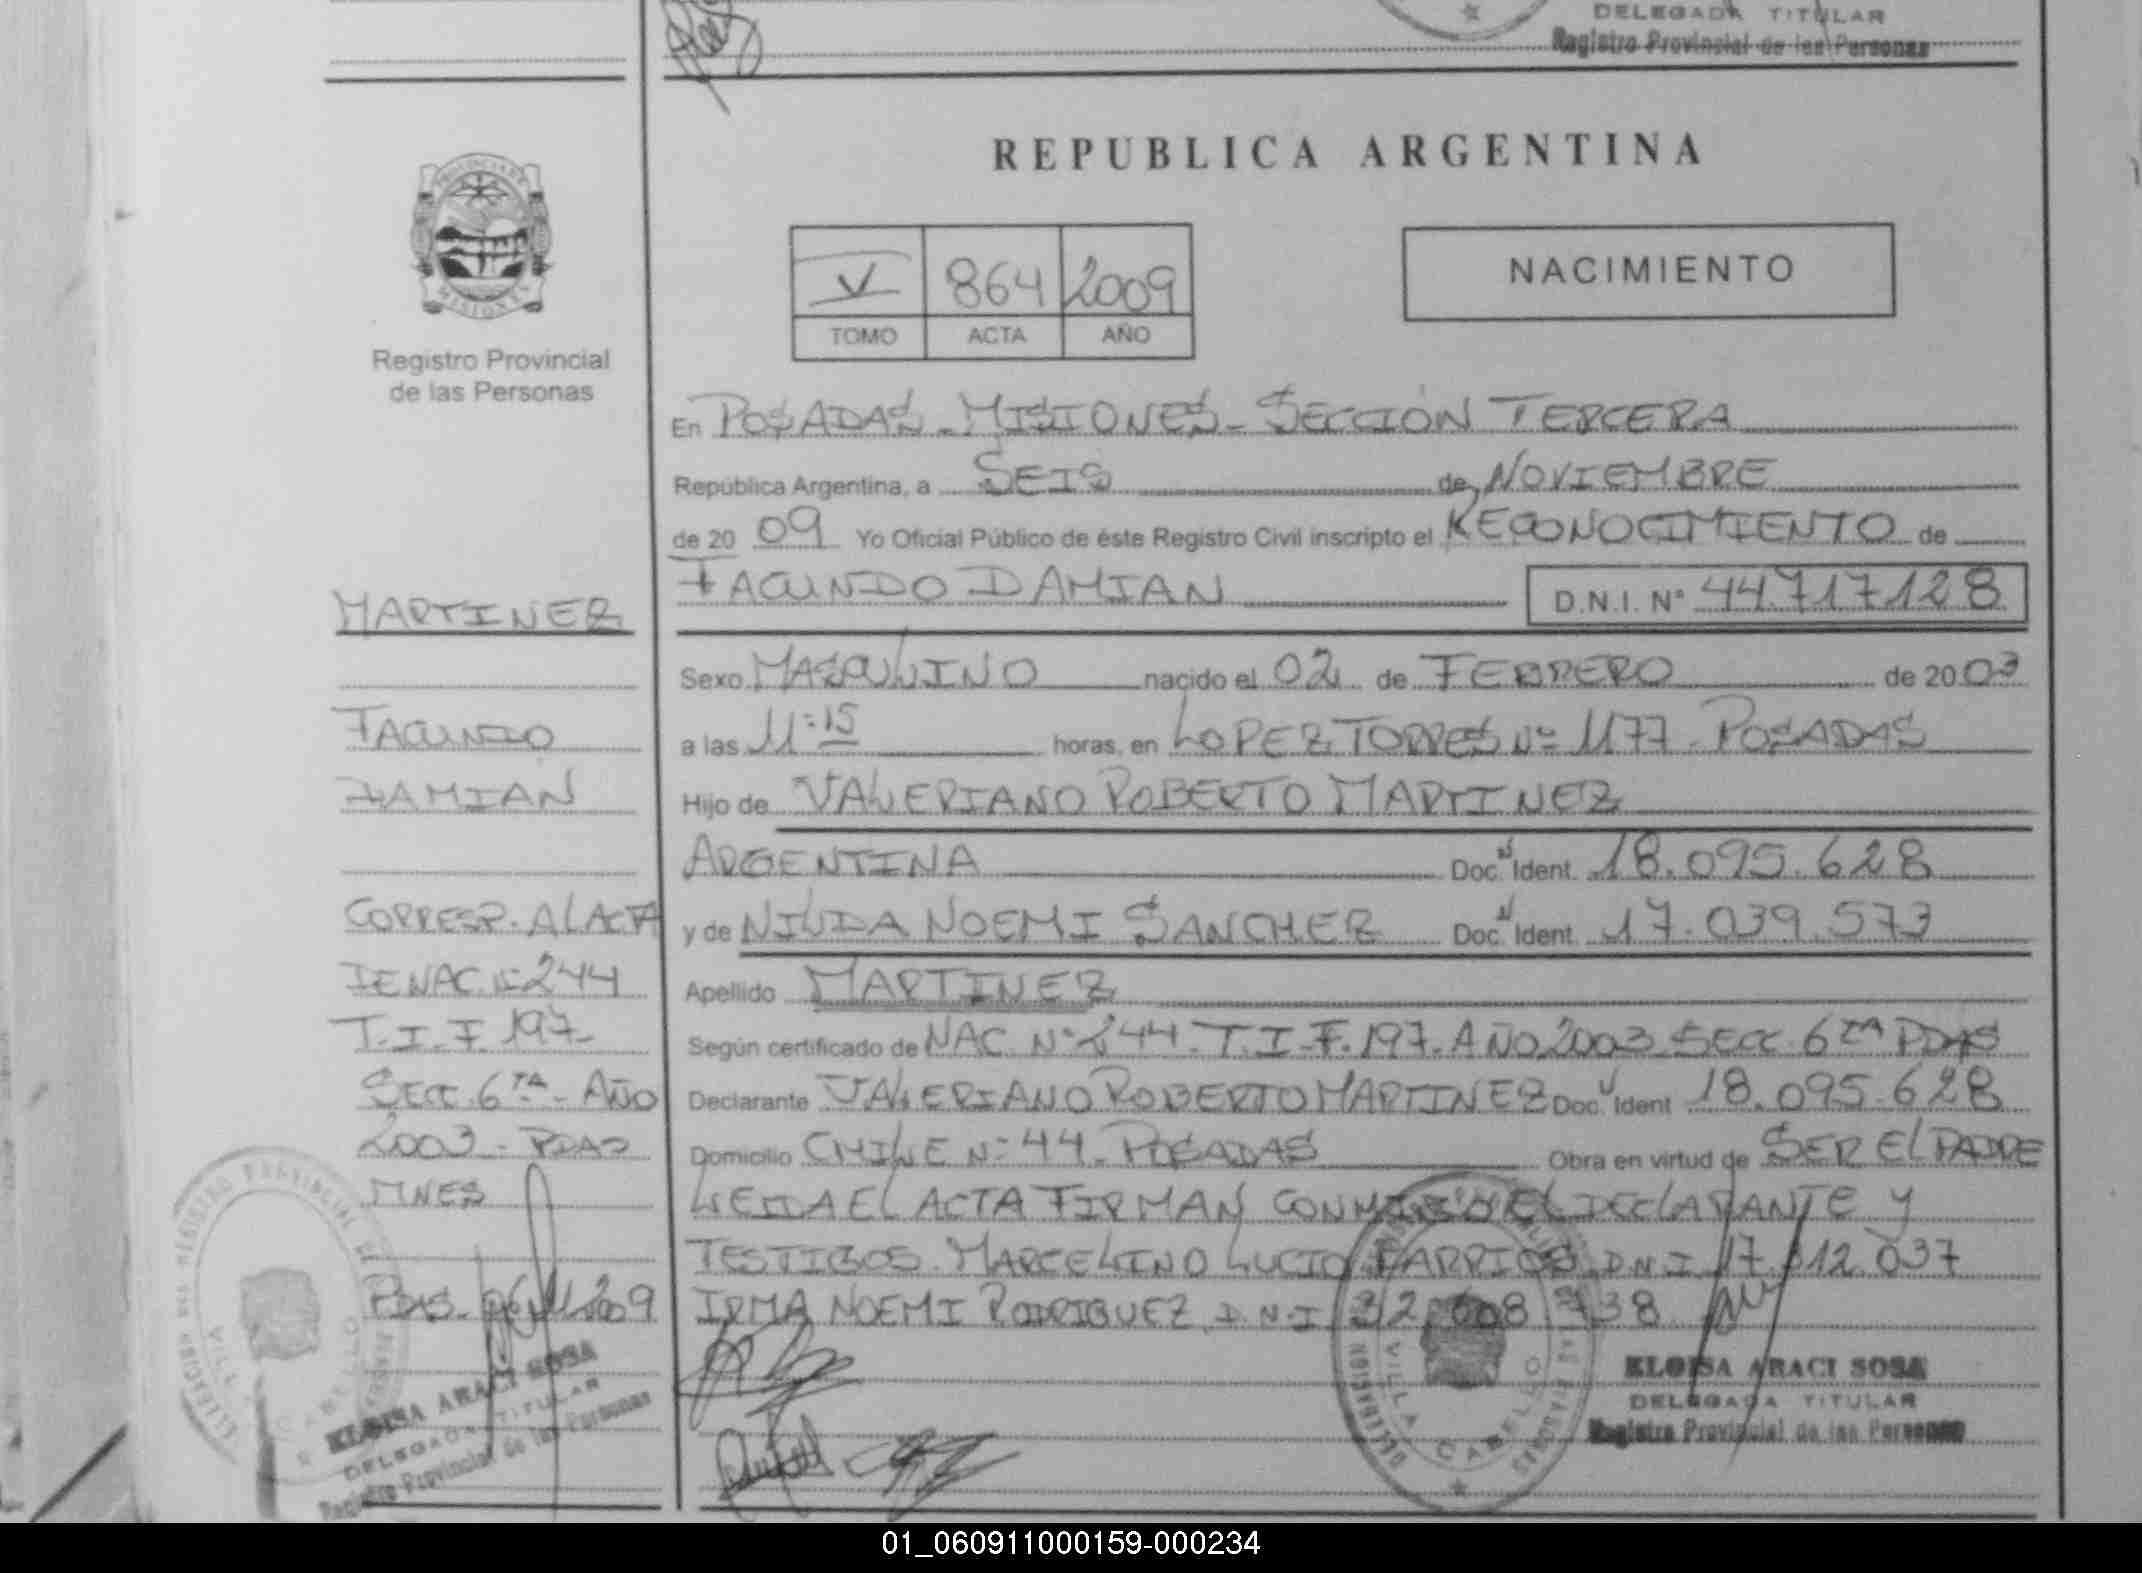 DELEGADA TITULAR
Registro Provincial de las Personas
REPUBLICA ARGENTINA
PROVINCIA DE
MISIONES
V 864 2009
TOMO ACTA AÑO
NACIMIENTO
Registro Provincial
de las Personas
En POSADAS - MISIONES - SECCIÓN TERCERA
República Argentina, a SEIS de NOVIEMBRE
de 20 09 Yo Oficial Público de éste Registro Civil inscripto el RECONOCIMIENTO de
FACUNDO DAMIAN D.N.I. Nº 44.717.128
MARTINEZ
Sexo MASCULINO nacido el 02 de FEBRERO de 2003
FACUNDO
a las 11:15 horas, en LOPEZ TORRES Nº 1177 - POSADAS
DAMIAN
Hijo de VALERIANO ROBERTO MARTINEZ
ARGENTINA Doc. N Ident. 18.095.628
CORRESP. AL ACTA
y de NILDA NOEMI SANCHEZ Doc. N Ident. 17.039.573
DE NAC. Nº 244
Apellido MARTINEZ
T. I - F. 197-
Según certificado de NAC. Nº 244 - T. I - F. 197 - AÑO 2003 - SECC. 6TA PDAS
SECC. 6TA - AÑO
Declarante VALERIANO ROBERTO MARTINEZ Doc. N Ident 18.095.628
2003 - PDAS
Domicilio CHILE Nº 44 - POSADAS Obra en virtud de SER EL PADRE
MNES
LEIDA EL ACTA FIRMAN CONMIGO EL DECLARANTE Y
TESTIGOS. MARCELINO LUCIO BARRIOS D.N.I 17.812.037
PDAS - 06/11/2009
IRMA NOEMI RODRIGUEZ, D.N.I 32.608 738
ELOISA ARACI SOSA
DELEGADA TITULAR
Registro Provincial de las Personas
ELOISA ARACI SOSA
DELEGADA TITULAR
Registro Provincial de las Personas
DELEGACION DEL REGISTRO PROVINCIAL DE LAS PERSONAS
VILLA CABELLO
DELEGACION DEL REGISTRO PROVINCIAL DE LAS PERSONAS
VILLA CABELLO
01_060911000159-000234